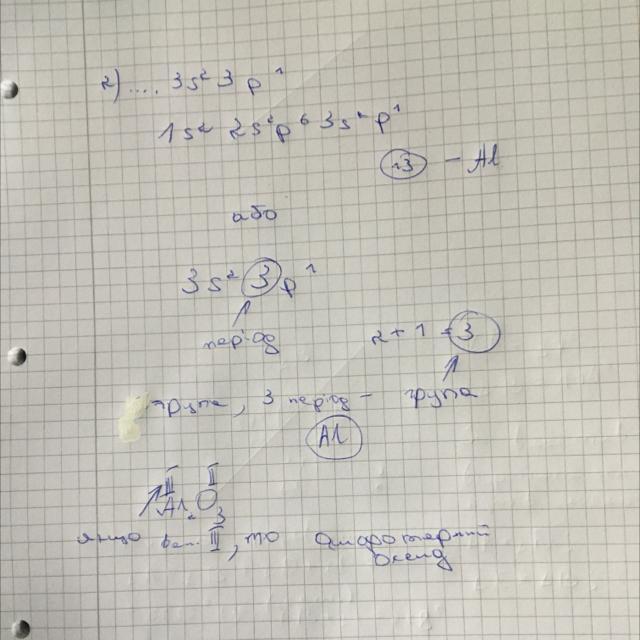 2) .... 3s² 3p¹
1s² 2s²p⁶ 3s²p¹
13 – Al
або
3s² 3p¹
період
2+1=3
група, 3 період – група
Al
III II
Al₂O₃
якщо вал. III, то амфотерний
оксид